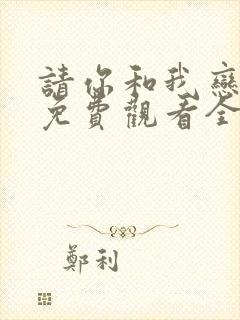 請你和我戀
免費觀看全
鄭利